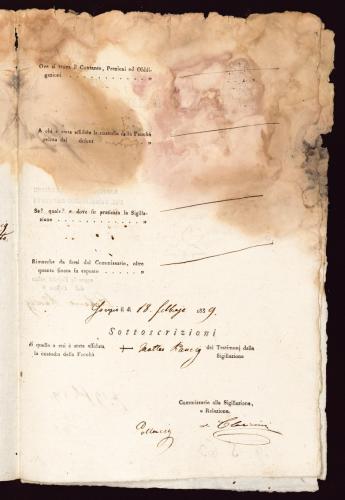 Ove si trova il Contante, Preziosi ed Obbli-
gazioni . . . . . . . . . . . . . . . . . . „
A chi è stata affidata la custodia della Facoltà
prima dei . . . . . . . . . „
Se? quale? e dove fu praticata la Sigilla-
zione . . . . . . . . . . . . . . . . . . „
Rimarche da farsi dal Commissario, oltre
quanto finora fu esposto . . . . . . . . . „
li di 18. febbrajo 1839.
Sottoscrizioni
di quello a cui è stata affidata
la custodia della Facoltà
+ Matteo
dei Testimonj della
Sigillazione
Commissario alla Sigillazione,
e Relazione.